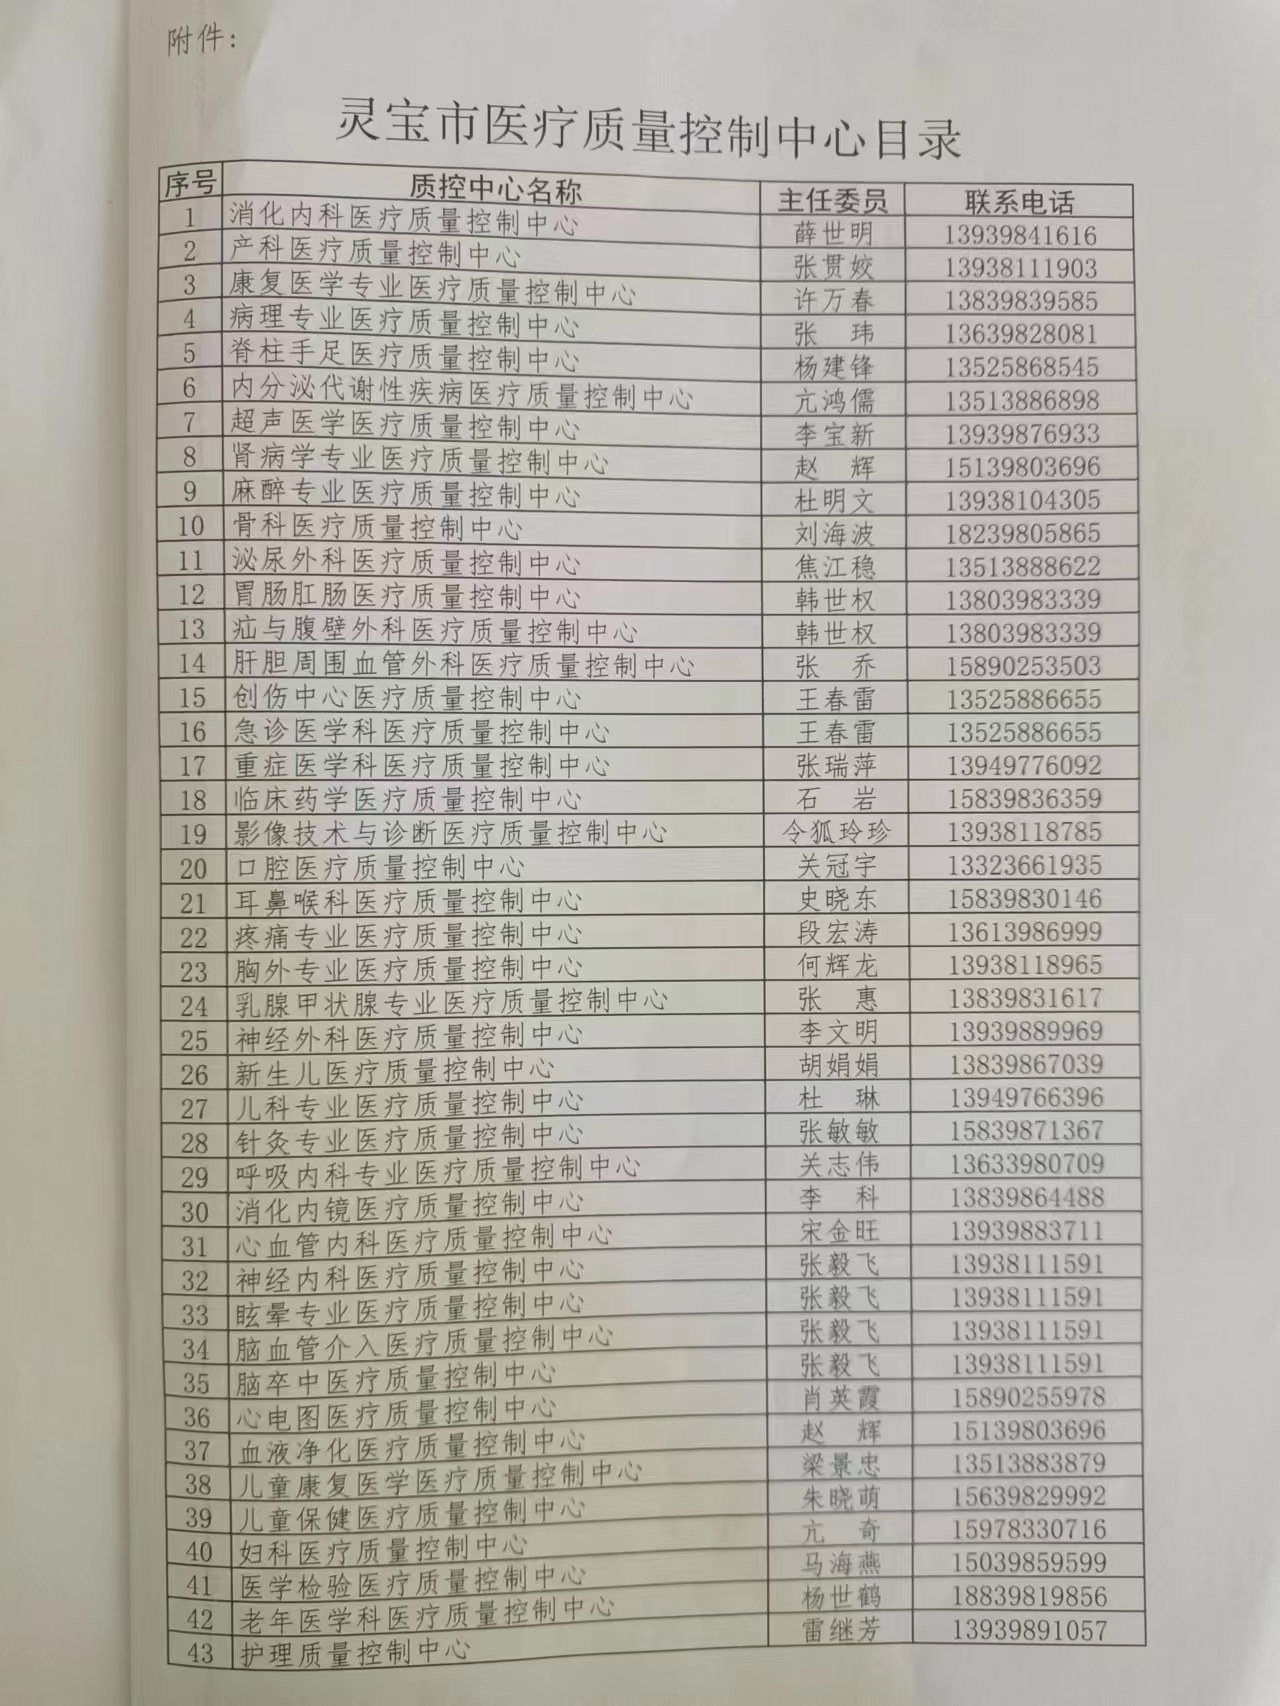 附件:
灵宝市医疗质量控制中心目录
序号 质控中心名称 主任委员 联系电话
1 消化内科医疗质量控制中心 薛世明 13939841616
2 产科医疗质量控制中心 张贯姣 13938111903
3 康复医学专业医疗质量控制中心 许万春 13839839585
4 病理专业医疗质量控制中心 张 玮 13639828081
5 脊柱手足医疗质量控制中心 杨建锋 13525868545
6 内分泌代谢性疾病医疗质量控制中心 亢鸿儒 13513886898
7 超声医学医疗质量控制中心 李宝新 13939876933
8 肾病学专业医疗质量控制中心 赵 辉 15139803696
9 麻醉专业医疗质量控制中心 杜明文 13938104305
10 骨科医疗质量控制中心 刘海波 18239805865
11 泌尿外科医疗质量控制中心 焦江稳 13513888622
12 胃肠肛肠医疗质量控制中心 韩世权 13803983339
13 疝与腹壁外科医疗质量控制中心 韩世权 13803983339
14 肝胆周围血管外科医疗质量控制中心 张 乔 15890253503
15 创伤中心医疗质量控制中心 王春雷 13525886655
16 急诊医学科医疗质量控制中心 王春雷 13525886655
17 重症医学科医疗质量控制中心 张瑞萍 13949776092
18 临床药学医疗质量控制中心 石 岩 15839836359
19 影像技术与诊断医疗质量控制中心 令狐玲珍 13938118785
20 口腔医疗质量控制中心 关冠宇 13323661935
21 耳鼻喉科医疗质量控制中心 史晓东 15839830146
22 疼痛专业医疗质量控制中心 段宏涛 13613986999
23 胸外专业医疗质量控制中心 何辉龙 13938118965
24 乳腺甲状腺专业医疗质量控制中心 张 惠 13839831617
25 神经外科医疗质量控制中心 李文明 13939889969
26 新生儿医疗质量控制中心 胡娟娟 13839867039
27 儿科专业医疗质量控制中心 杜 琳 13949766396
28 针灸专业医疗质量控制中心 张敏敏 15839871367
29 呼吸内科专业医疗质量控制中心 关志伟 13633980709
30 消化内镜医疗质量控制中心 李 科 13839864488
31 心血管内科医疗质量控制中心 宋金旺 13939883711
32 神经内科医疗质量控制中心 张毅飞 13938111591
33 眩晕专业医疗质量控制中心 张毅飞 13938111591
34 脑血管介入医疗质量控制中心 张毅飞 13938111591
35 脑卒中医疗质量控制中心 张毅飞 13938111591
36 心电图医疗质量控制中心 肖英霞 15890255978
37 血液净化医疗质量控制中心 赵 辉 15139803696
38 儿童康复医学医疗质量控制中心 梁景忠 13513883879
39 儿童保健医疗质量控制中心 朱晓萌 15639829992
40 妇科医疗质量控制中心 亢 奇 15978330716
41 医学检验医疗质量控制中心 马海燕 15039859599
42 老年医学科医疗质量控制中心 杨世鹤 18839819856
43 护理质量控制中心 雷继芳 13939891057